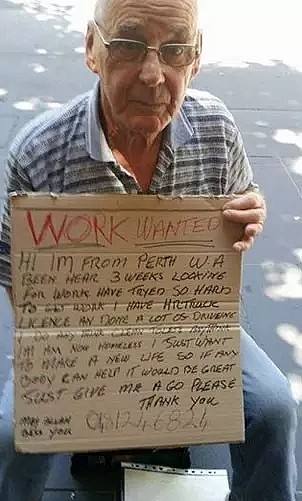 WORK WANTED
HI IM FROM PERTH W.A
BEEN HEAR 3 WEEKS LOOKING
FOR WORK HAVE TRYED SO HARD
TO GET WORK I HAVE HR TRUCK
LICENCE AN DONE A LOT OF DRIVEING
I DO ANY THING CLEAN TOILETS ANYTHING
IM AM NOW HOMELESS I JUST WANT
TO MAKE A NEW LIFE SO IF ANY
BODY CAN HELP IT WOULD BE GREAT
JUST GIVE ME A GO PLEASE
THANK YOU
MAY ALLAH
BESS YOU